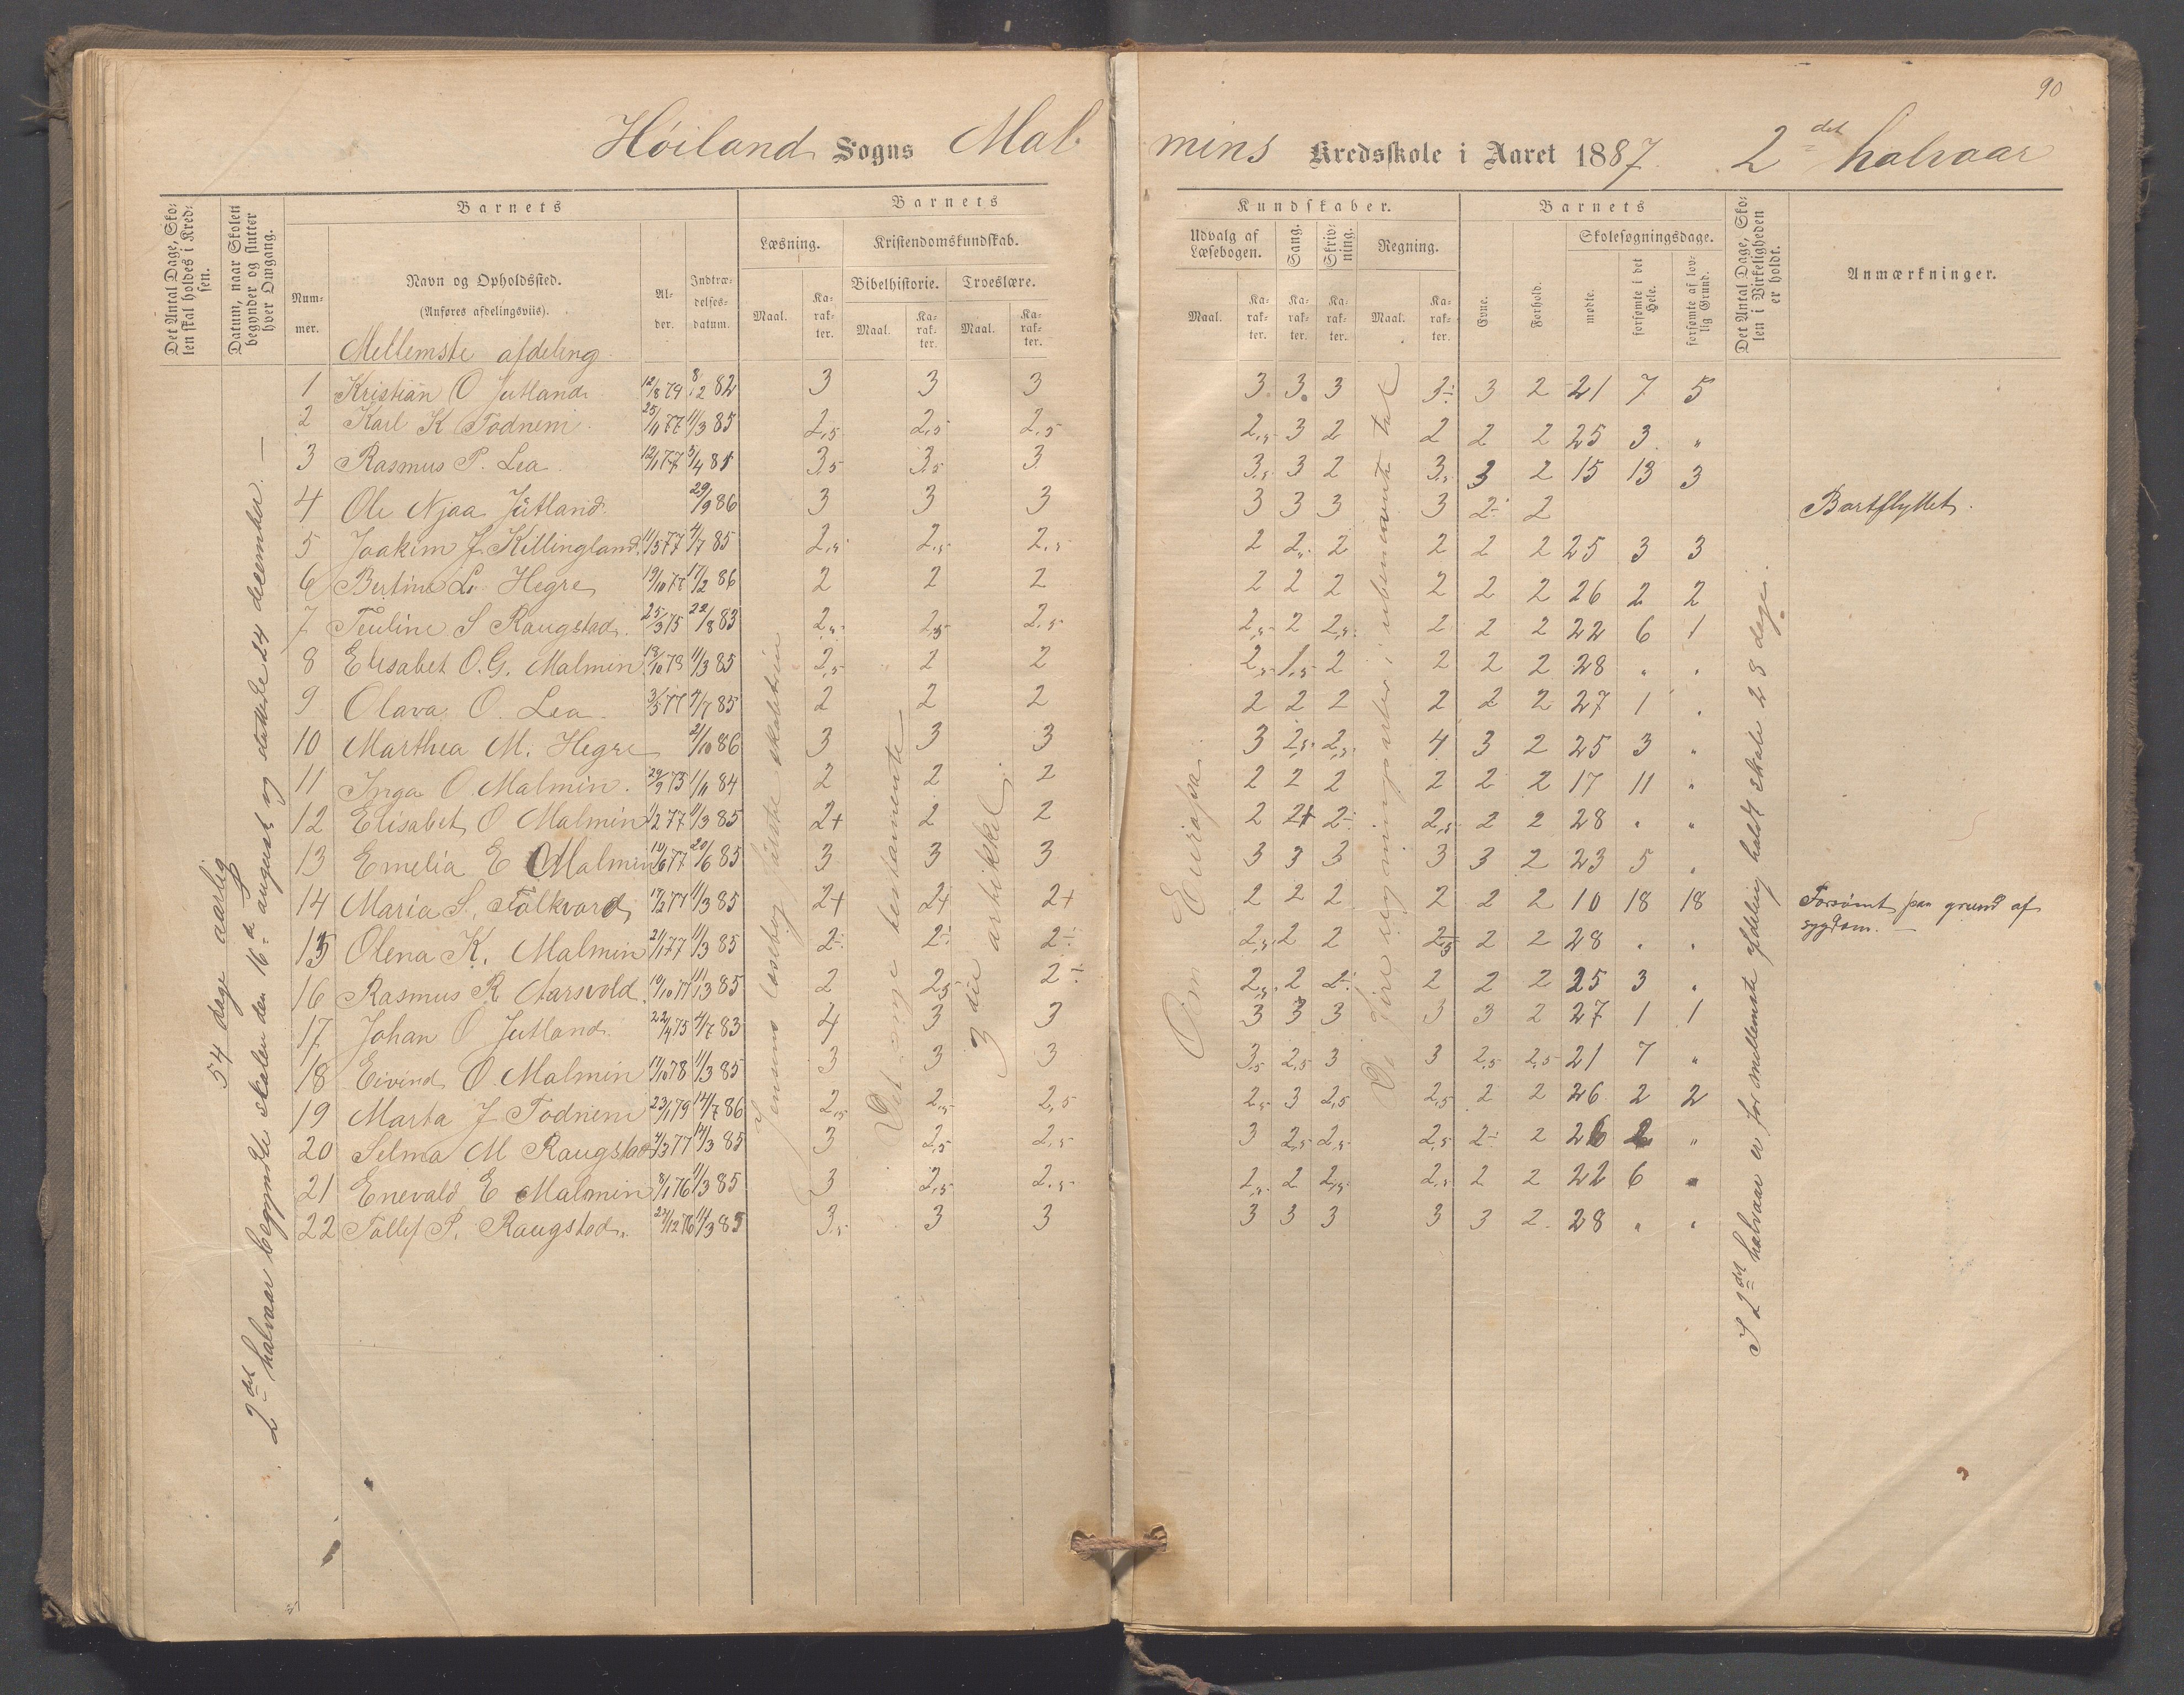 90
Høiland Sogns Malmins Kredsskole i Aaret 1887. 2det halvaar
Det Antal Dage, Skolen skal holdes i Kredsen.
Datum, naar Skolen begynder og slutter hver Omgang.
Barnets
Nummer.
Navn og Opholdssted.
(Anføres afdelingsviis).
Alder.
Indtrædelsesdatum.
Barnets Kundskaber.
Læsning.
Maal.
Karakter.
Kristendomskundskab.
Bibelhistorie.
Maal.
Karakter.
Troeslære.
Maal.
Karakter.
Udvalg af Læsebogen.
Maal.
Karakter.
Sang.
Karakter.
Skrivning.
Karakter.
Regning.
Maal.
Karakter.
Barnets
Evne.
Forhold.
Skolesøgningsdage.
mødte.
forsømte i det Hele.
forsømte af lovlig Grund.
Det Antal Dage, Skolen i Virkeligheden er holdt.
Anmærkninger.
54 dage aarlig
2det halvaar begyndte skolen den 16de august og sluttede 24 december. —
Mellemste afdeling
1 Kristian O Jutland 12/8 79 8/2 82 3 3 3 3 3 3 3÷ 3 2 21 7 5
2 Karl K Todnem 25/11 77 11/3 85 2,5 2,5 2,5 2,5 3 2 2 2 2 25 3 "
3 Rasmus P. Lea 12/1 77 5/4 85 3,5 3,5 3 3,5 3 2 3,5 3 2 15 13 3
4 Ole Njaa Jutland 29/9 86 3 3 3 3 3 3 3 2÷ 2 Bortflyttet.
5 Joakim J Killingland 11/5 77 4/7 85 2,5 2,5 2,5 2 2,5 2 2 2 2 25 3 3
6 Bertine L. Hegre 19/10 77 17/2 86 2 2 2 2 2 2 2 2 2 26 2 2
7 Teuline S Raugstad 25/3 75 22/8 83 2,5 2,5 2,5 2,5 2 2,5 2 2 2 22 6 1
8 Elisabet O.G. Malmin 18/10 78 11/3 85 2,5 2 2 2,5 1,5 2 2 2 2 28 " "
9 Olava O. Lea 3/5 77 4/7 85 2 2 2 2 2 2 2 2 2 27 1 "
10 Marthea M. Hegre 21/10 86 3 3 3 3 2,5 2,5 4 3 2 25 3 "
11 Inga O. Malmin. 29/9 75 1/11 84 2 2 2 2 2 2 2 2 2 17 11 "
12 Elisabet O Malmin 1/2 77 11/3 85 2+ 2 2 2 2+ 2÷ 2,5 2 2 28 " "
13 Emelia E Malmin 10/6 77 20/6 85 3 3 3 3 3 3 3 3 2 23 5 "
14 Maria S. Folkvord 18/2 77 11/3 85 2+ 2+ 2+ 2 2 2 2 2 2 10 18 18 Forsømt paa grund af sygdom.
15 Olena K. Malmin 21/1 77 11/3 85 2÷ 2÷ 2÷ 2,5 2 2 2,5 2 2 28 " "
16 Rasmus R Aarsvold 19/10 77 11/3 85 2 2,5 2÷ 2,5 2 2÷ 2 2 2 25 3 "
17 Johan O Jutland 22/4 75 4/7 83 4 3 3 3 3 3 3 3 2 27 1 1
18 Eivind O. Malmin 17/10 78 11/3 85 3 3 3 3,5 2,5 3 3 2,5 2,5 21 7 "
19 Marta J Todnem 23/1 79 14/7 86 2,5 2,5 2,5 2,5 3 2,5 2,5 2 2 26 2 2
20 Selma M Raugstad 4/3 77 14/3 85 3 2,5 2,5 3 2,5 2,5 2,5 2÷ 2 26 2 "
21 Enevald E Malmin 8/1 76 11/3 85 3 2,5 2,5 2,5 2 2,5 2,5 2 2 22 6 "
22 Tollef P. Raugstad. 24/12 76 11/3 85 3,5 3 3 3 3 3 3 3 2 28 " "
Jensens læsebog
Det nye testamente
3die artikkel
Om Europa.
De fire regningsarter i ubenævnte tal
I 2det halvaar er for mellemste afdeling holdt skole 28 dage.